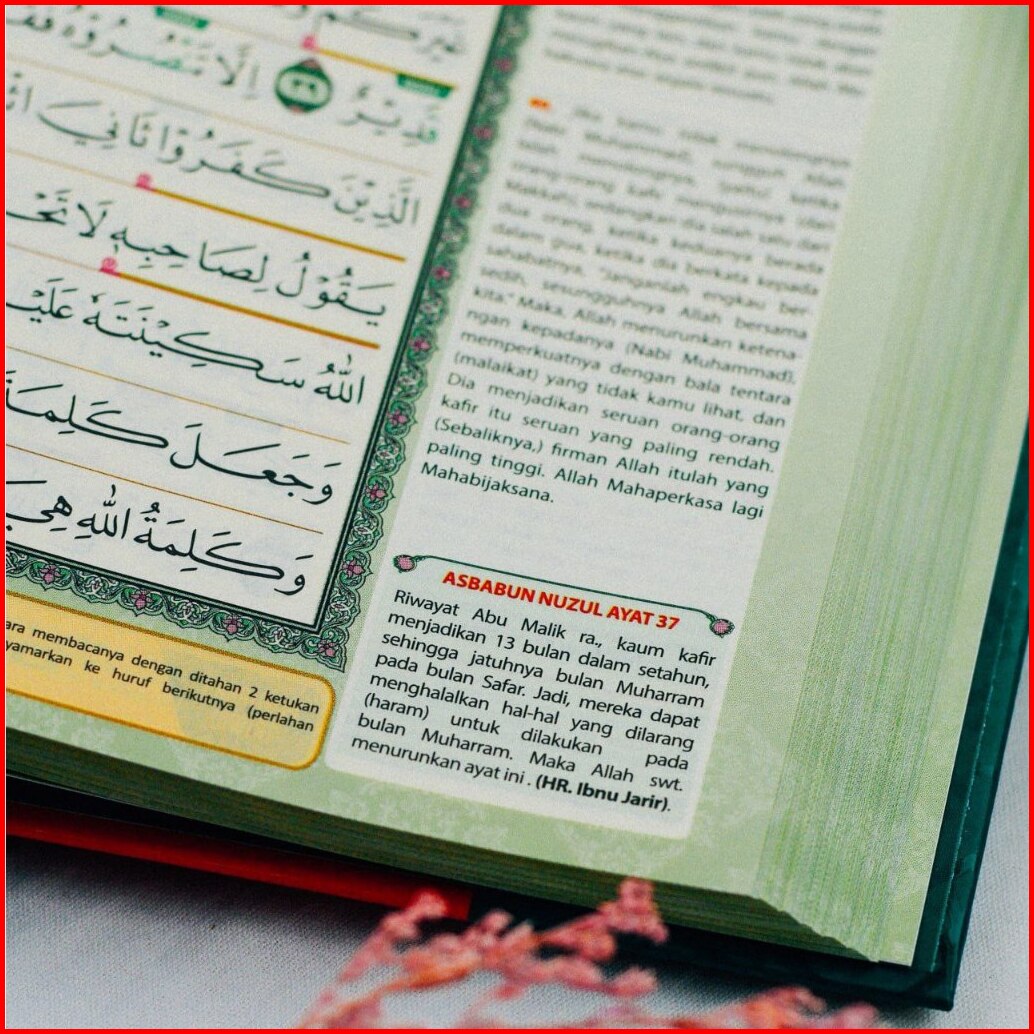 قَدِيْرٌ ٣٩ اِلَّا تَنْصُرُوْهُ
الَّذِيْنَ كَفَرُوْا ثَانِيَ
يَقُوْلُ لِصَاحِبِهٖ لَا
اللّٰهُ سَكِيْنَتَهٗ
وَجَعَلَ كَلِمَةَ
وَكَلِمَةُ اللّٰهِ هِيَ
ara membacanya dengan ditahan 2 ketukan
yamarkan ke huruf berikutnya (perlahan
Jika kamu tidak menolongnya
(Nabi Muhammad), sungguh Allah
telah menolongnya, (yaitu) ketika
orang-orang kafir mengusirnya (dari
Makkah), sedangkan dia salah satu dari
dua orang, ketika keduanya berada
dalam gua, ketika dia berkata kepada
sahabatnya, "Janganlah engkau ber-
sedih, sesungguhnya Allah bersama
kita." Maka, Allah menurunkan ketena-
ngan kepadanya (Nabi Muhammad),
memperkuatnya dengan bala tentara
(malaikat) yang tidak kamu lihat, dan
Dia menjadikan seruan orang-orang
kafir itu seruan yang paling rendah.
(Sebaliknya,) firman Allah itulah yang
paling tinggi. Allah Mahaperkasa lagi
Mahabijaksana.
ASBABUN NUZUL AYAT 37
Riwayat Abu Malik ra., kaum kafir
menjadikan 13 bulan dalam setahun,
sehingga jatuhnya bulan Muharram
pada bulan Safar. Jadi, mereka dapat
menghalalkan hal-hal yang dilarang
(haram) untuk dilakukan pada
bulan Muharram. Maka Allah swt.
menurunkan ayat ini . (HR. Ibnu Jarir).